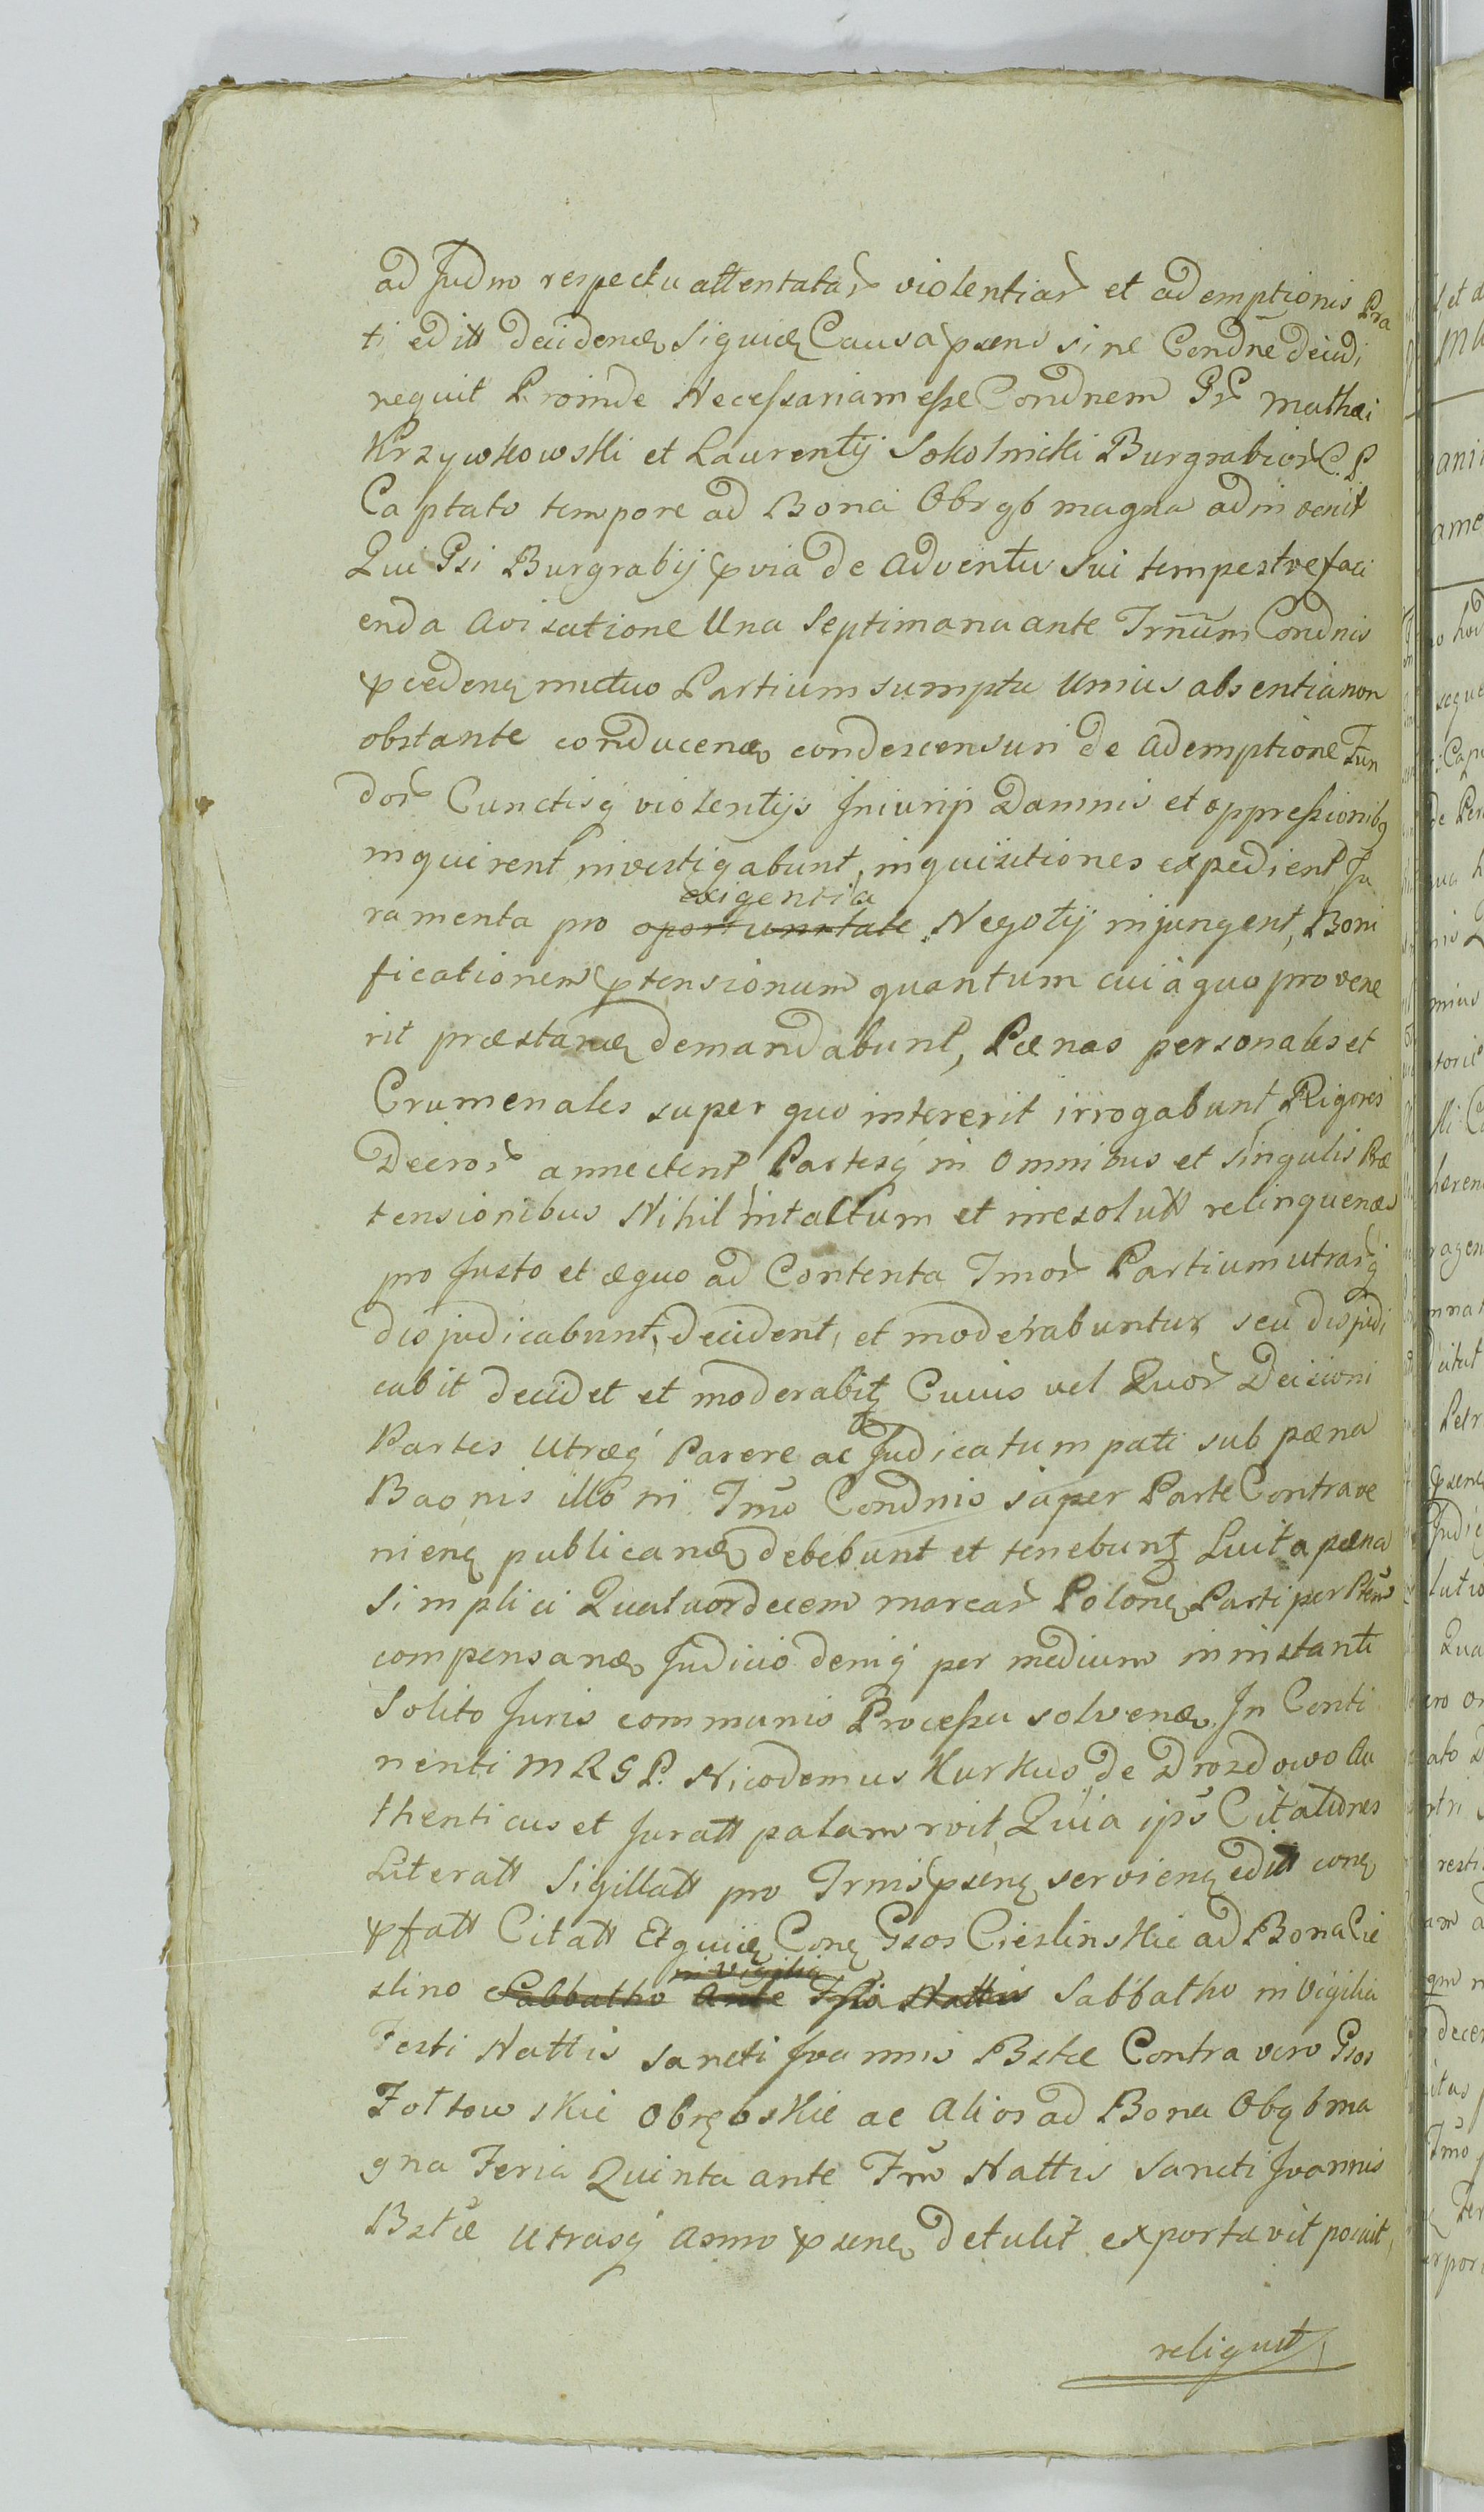 ad Judm respectu attentatar violentiar et ademptionis Pra
ti editt decidene siquid Causa psens sine Condne decidi
nequit Proinde Necessariam esse Condnem Gr Mathæi
Krzywkowski et Laurentÿ Sokolnicki Burgrabior C. P.
Captato tempore ad Bona Obręb magna adinvenit
Qui Gsi Burgrabij pvia de Adventu Sui tempestve faci
enda Avisatione Una Septimana ante Trnum Condnis
pceden mutuo Partium sumptu Unius absentia non
obstante conducen condescensuri de Ademptione Fun
dor Cunctisq violentÿs Injurijs Damnis et oppressionibq
inquirent investigabunt, inquisitiones expedient, Ju
exigentia
ramenta pro oportunitate Negotÿ injungent, Boni
ficationem ptensionum quantum cui à quo provene
rit præstan demandabunt, Pænas personales et
Crumenales super quo intererit irrogabunt Rigores
Decror annectent Partesq in Omnibus et Singulis Præ
tensionibus Nihil intactum et irresolutt relinquen
pro Justo et æquo ad Contenta Tmor Partium utrarq
disjudicabunt, decident, et moderabuntur seu disjudi
cabit decidet et moderabitz Cuius vel Quor Decisioni
Partes Utræq Parere ac Judicatum pati sub pæna
Baonis illo in Tmo Condnis super Parte Contrave
nien publican debebunt et tenebuntz Luit a pæna
Simplici Quatuordecem marcar Polon Parti per Ptem
compensan Judicio deniq per medium in instanti
Solito Juris communis Processu solven. In Conti
nenti M R G P. Nicodemus Kurkus de Drozdowo Au
thenticus et Juratt palam rvit Quia ips Citationes
Literatt Sigillatt pro Trmis psen servien editt con
pfatt Citatt Et quid Con Gsos Cieslinskie ad Bona Cie
in Vigilia
slino Sabbatho Ante Natlis Sabbatho in Vigilia
Festi Natlis Sancti Joannis Bstæ Contra vero Gsos
Zołtowskie Obrębskie ac Alios ad Bona Obęb ma
gna Feria Quinta ante Fm Natlis Sancti Joannis
Bstæ Utrasq Anno psen detulit exportavit posuit,
reliquit